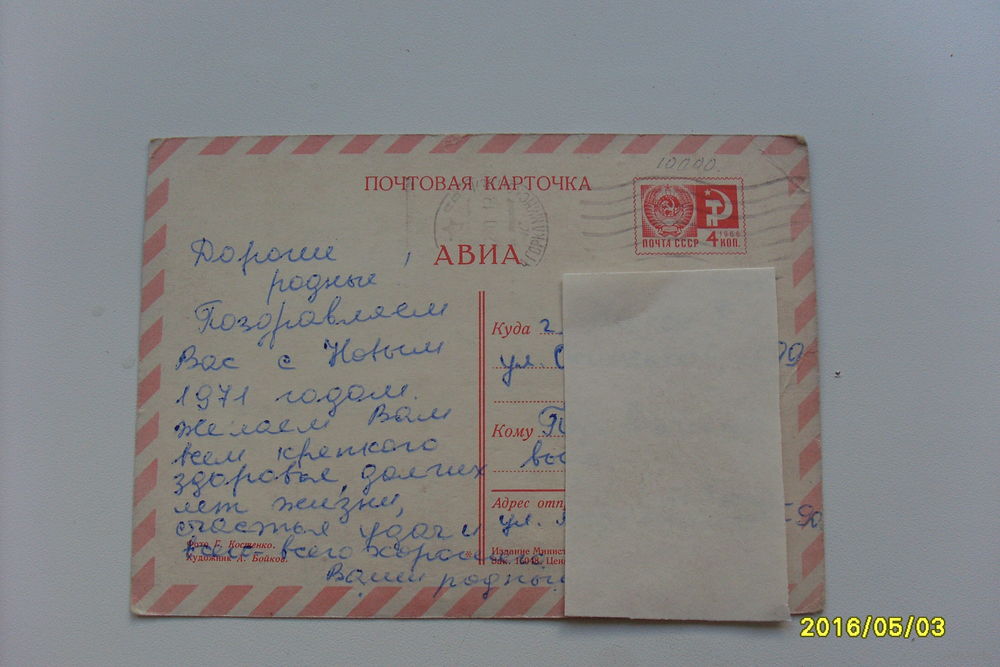 10000
ПОЧТОВАЯ КАРТОЧКА
АВИА
1966
ПОЧТА СССР 4 КОП.
Дорогие
родные,
Поздравляем
Вас с Новым
1971 годом.
Желаем Вам
всем крепкого
здоровья, долгих
лет жизни,
счастья удачи
всего-всего хорошего
Ваши родные
Фото Г. Костенко.
Художник А. Бойков.
Куда г
ул. О
Кому
Адрес отп
ул.
Издание Минист
Зак. 16048. Цен
2016/05/03